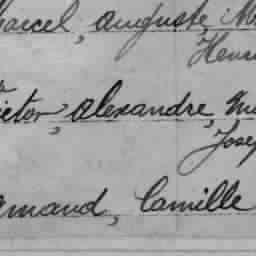 Marcel, Auguste, M
Henri
Victor, Alexandre, M
Josep
Armand, Camille